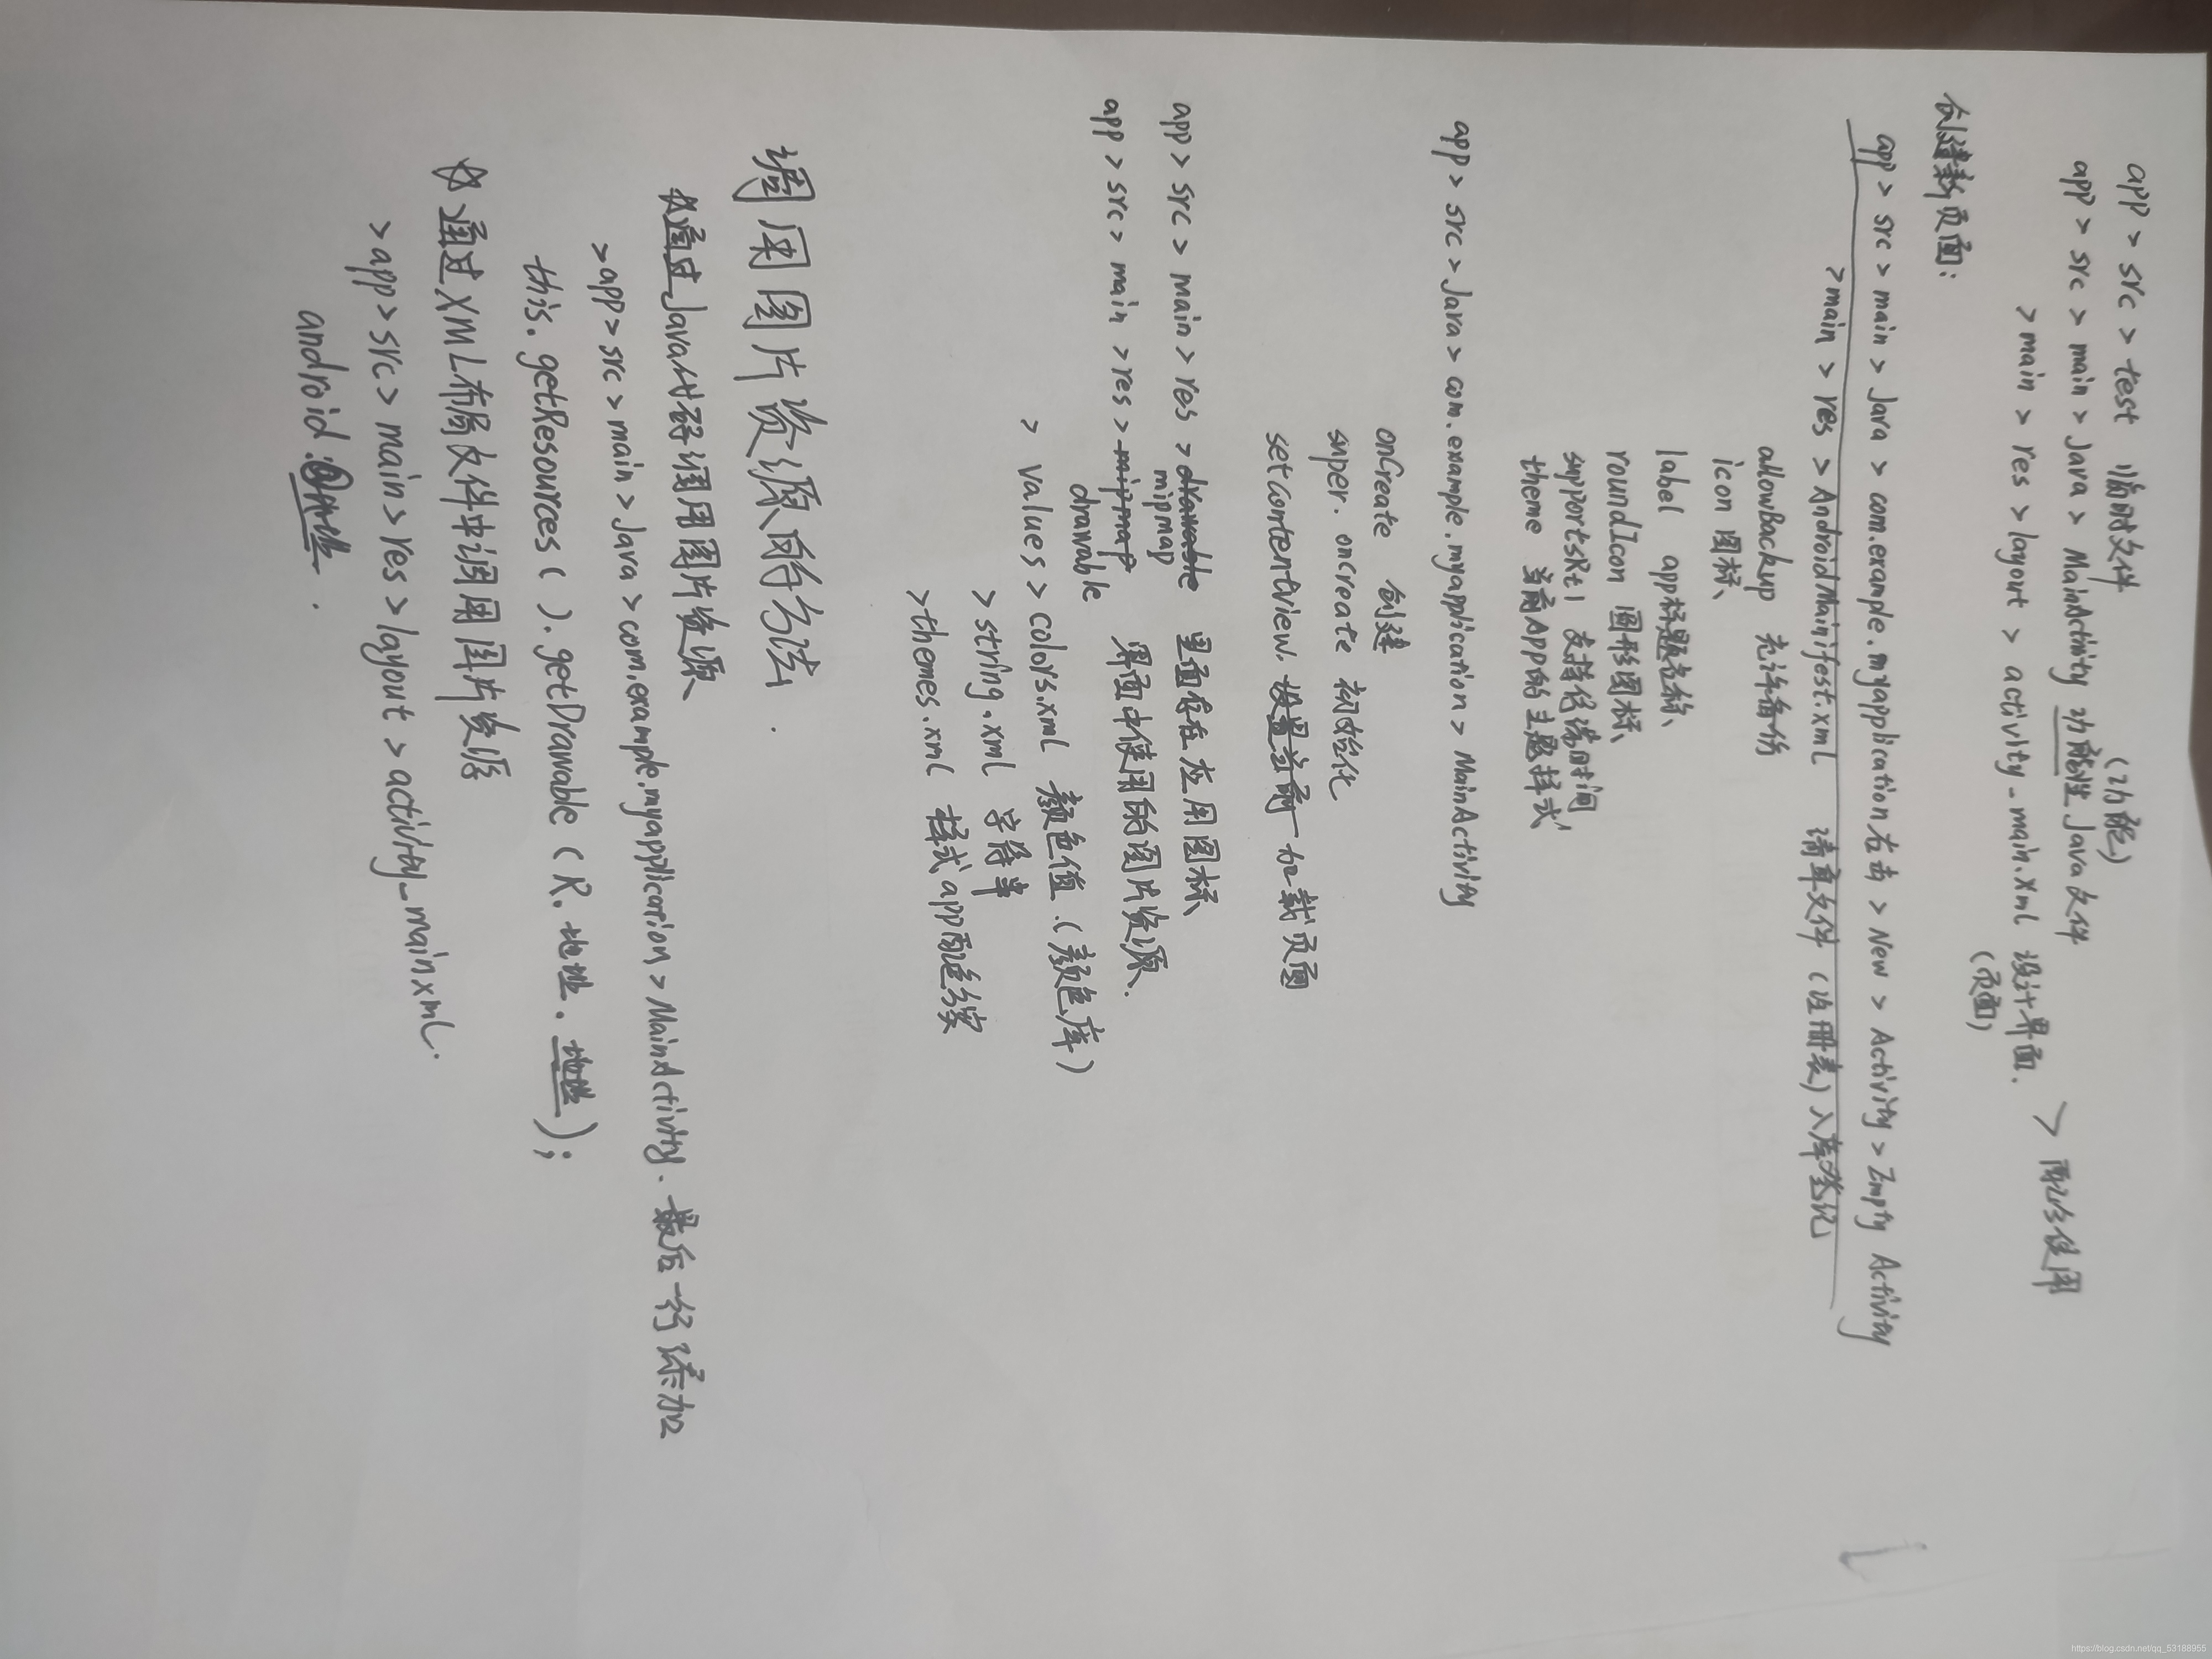 app > src > test 临时文件
(功能)
app > src > main > Java > MainActivity 功能性Java文件
> main > res > layout > activity_main.xml 设计界面.
(页面)
> 配合使用
创建新页面:
app > src > main > Java > com.example.myapplication 右击 > New > Activity > Empty Activity
> main > res > AndroidMainifest.xml 清单文件 (注册表) 入库登记
allowBackup 允许备份
icon 图标、
label app标题名称、
roundIcon 圆形图标、
supportsRtl 支持传递时间,
theme 当前APP的主题样式
app > src > Java > com.example.myapplication > MainActivity
onCreate 创建
super.onCreate 初始化
setContentView. 设置当前一加载页面
app > src > main > res > drawable 里面存在应用图标
mipmap
app > src > main > res > mipmap 界面中使用的图片资源.
drawable
> values > colors.xml 颜色值.(颜色库)
> string.xml 字符串
> themes.xml 样式 app配色方案
调用图片资源的方法.
通过Java代码调用图片资源
> app > src > main > Java > com.example.myapplication > MainActivity. 最后一行添加
this.getResources().getDrawable(R.地址.地址);
☆通过XML布局文件中调用图片资源
> app > src > main > res > layout > activity_main xml.
android:@地址.
https://blog.csdn.net/qq_53188955